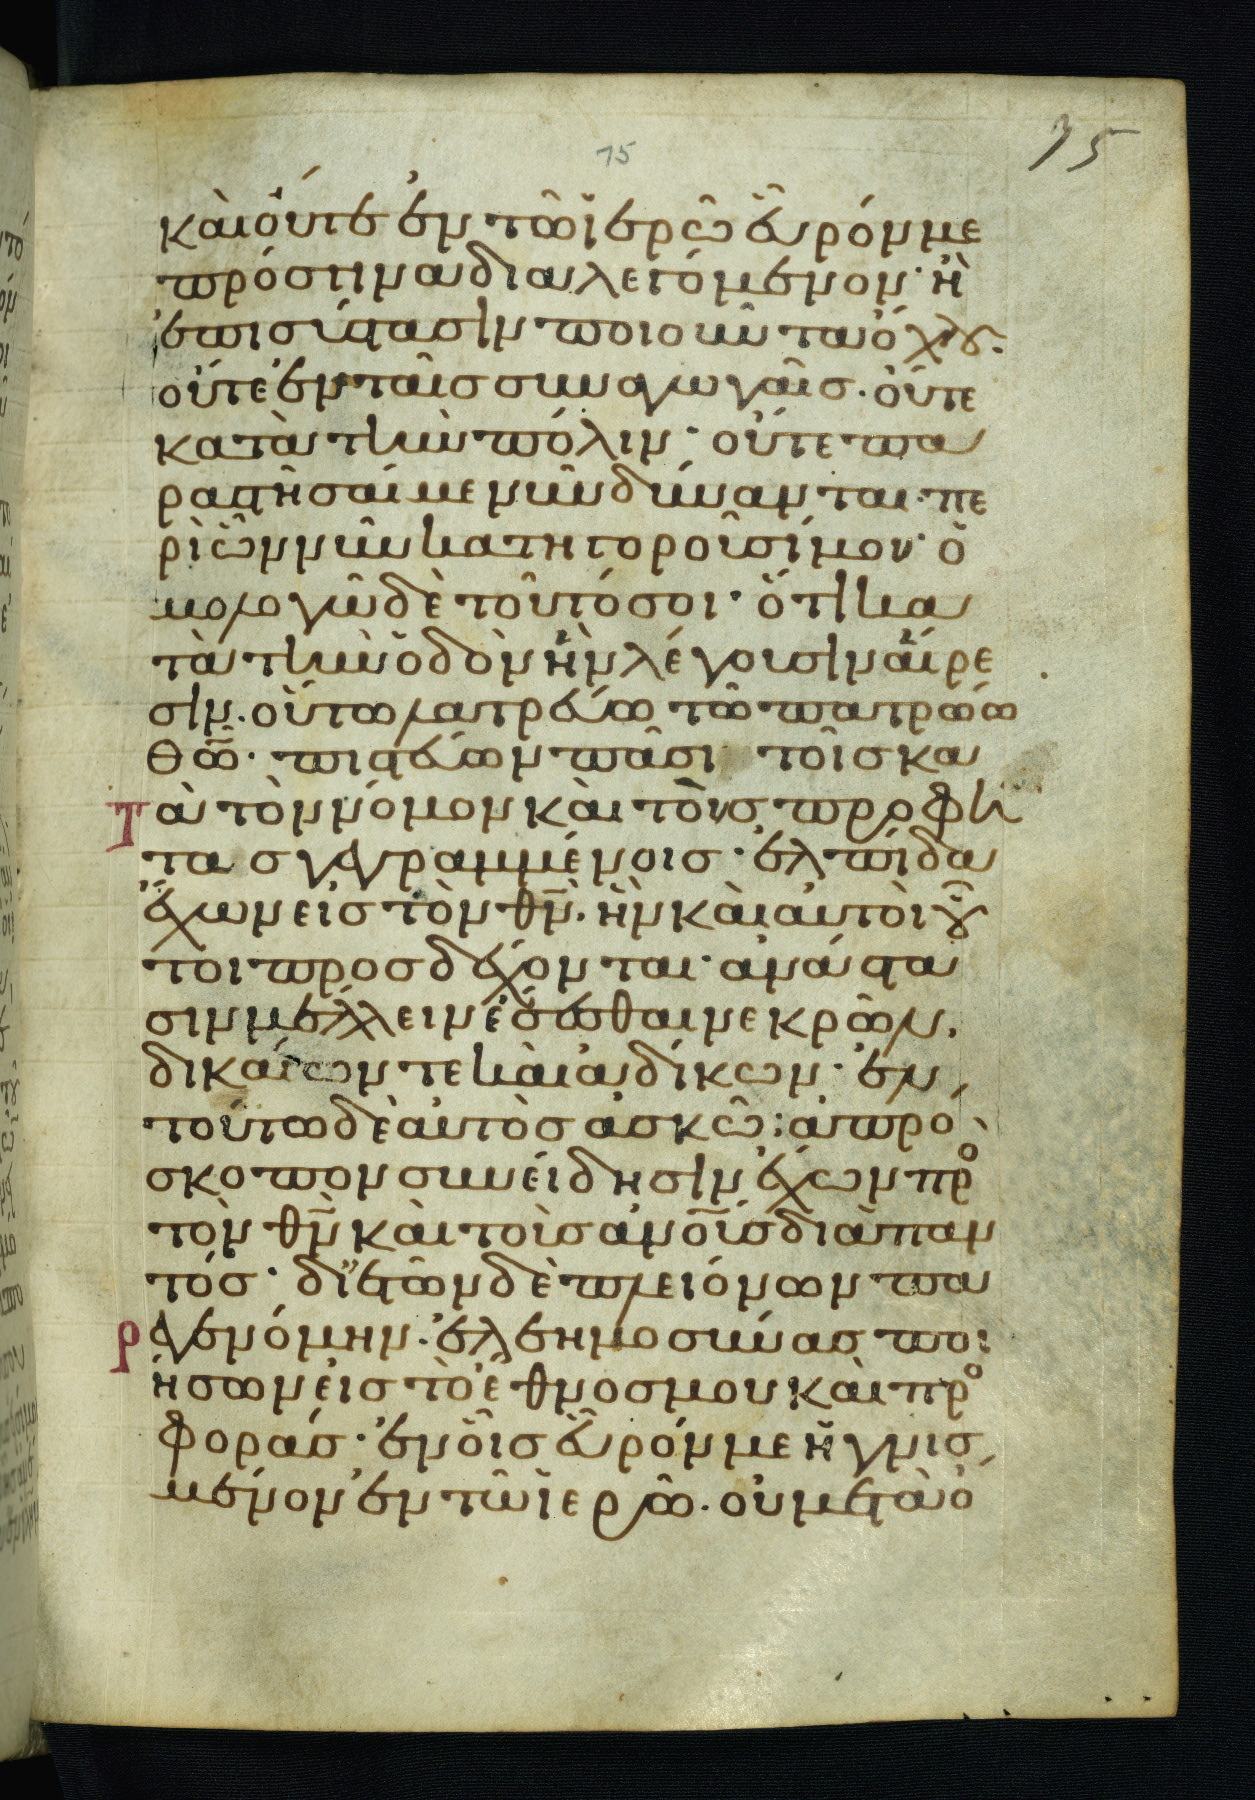 75
15
καὶ οὔτε ἐν τῶ ἱερῶ εὗρόν με
πρός τινα διαλεγόμενον· ἢ
ἐπισύστασιν ποιοῦντα ὄχλου.
οὔτε ἐν ταῖς συναγωγαῖς. οὔτε
κατὰ τὴν πόλιν· οὔτε πα
ραστῆσαί με νῦν δύνανται· πε
ρὶ ὧν νῦν κατηγοροῦσί μου· ὁ
μολογῶ δὲ τοῦτό σοι· ὅτι κα
τὰ τὴν ὁδὸν ἣν λέγουσιν αἵρε
σιν. οὕτω λατρεύω τῶ πατρώω
θῶ· πιστεύων πᾶσι τοῖς κα
Τὰ τὸν νόμον καὶ τοὺς προφή
τας γεγραμμένοις· ἐλπίδα
ἔχων εἰς τὸν θν̄. ἣν καὶ αὐτοὶ οὗ
τοι προσδέχονται· ἀνάστα
σιν μέλλειν ἔσεσθαι νεκρῶν.
δικαίων τε καὶ ἀδίκων· ἐν
τούτω δὲ αὐτὸς ἀσκῶ; ἀπρό
σκοπον συνείδησιν ἔχων πρὸ
τὸν θν̄ καὶ τοὺς ἀνοῦς διὰ παν
τός· δι' ἐτῶν δὲ πλειόνων πα
ρεγενόμην· ἐλεημοσύνας ποι
ήσων εἰς τὸ ἔθνος μου καὶ προ
φοράς· ἐν οἷς εὗρόν με ἡγνισ
μένον ἐν τῶ ἱερῶ. οὐ μετὰ ὀ